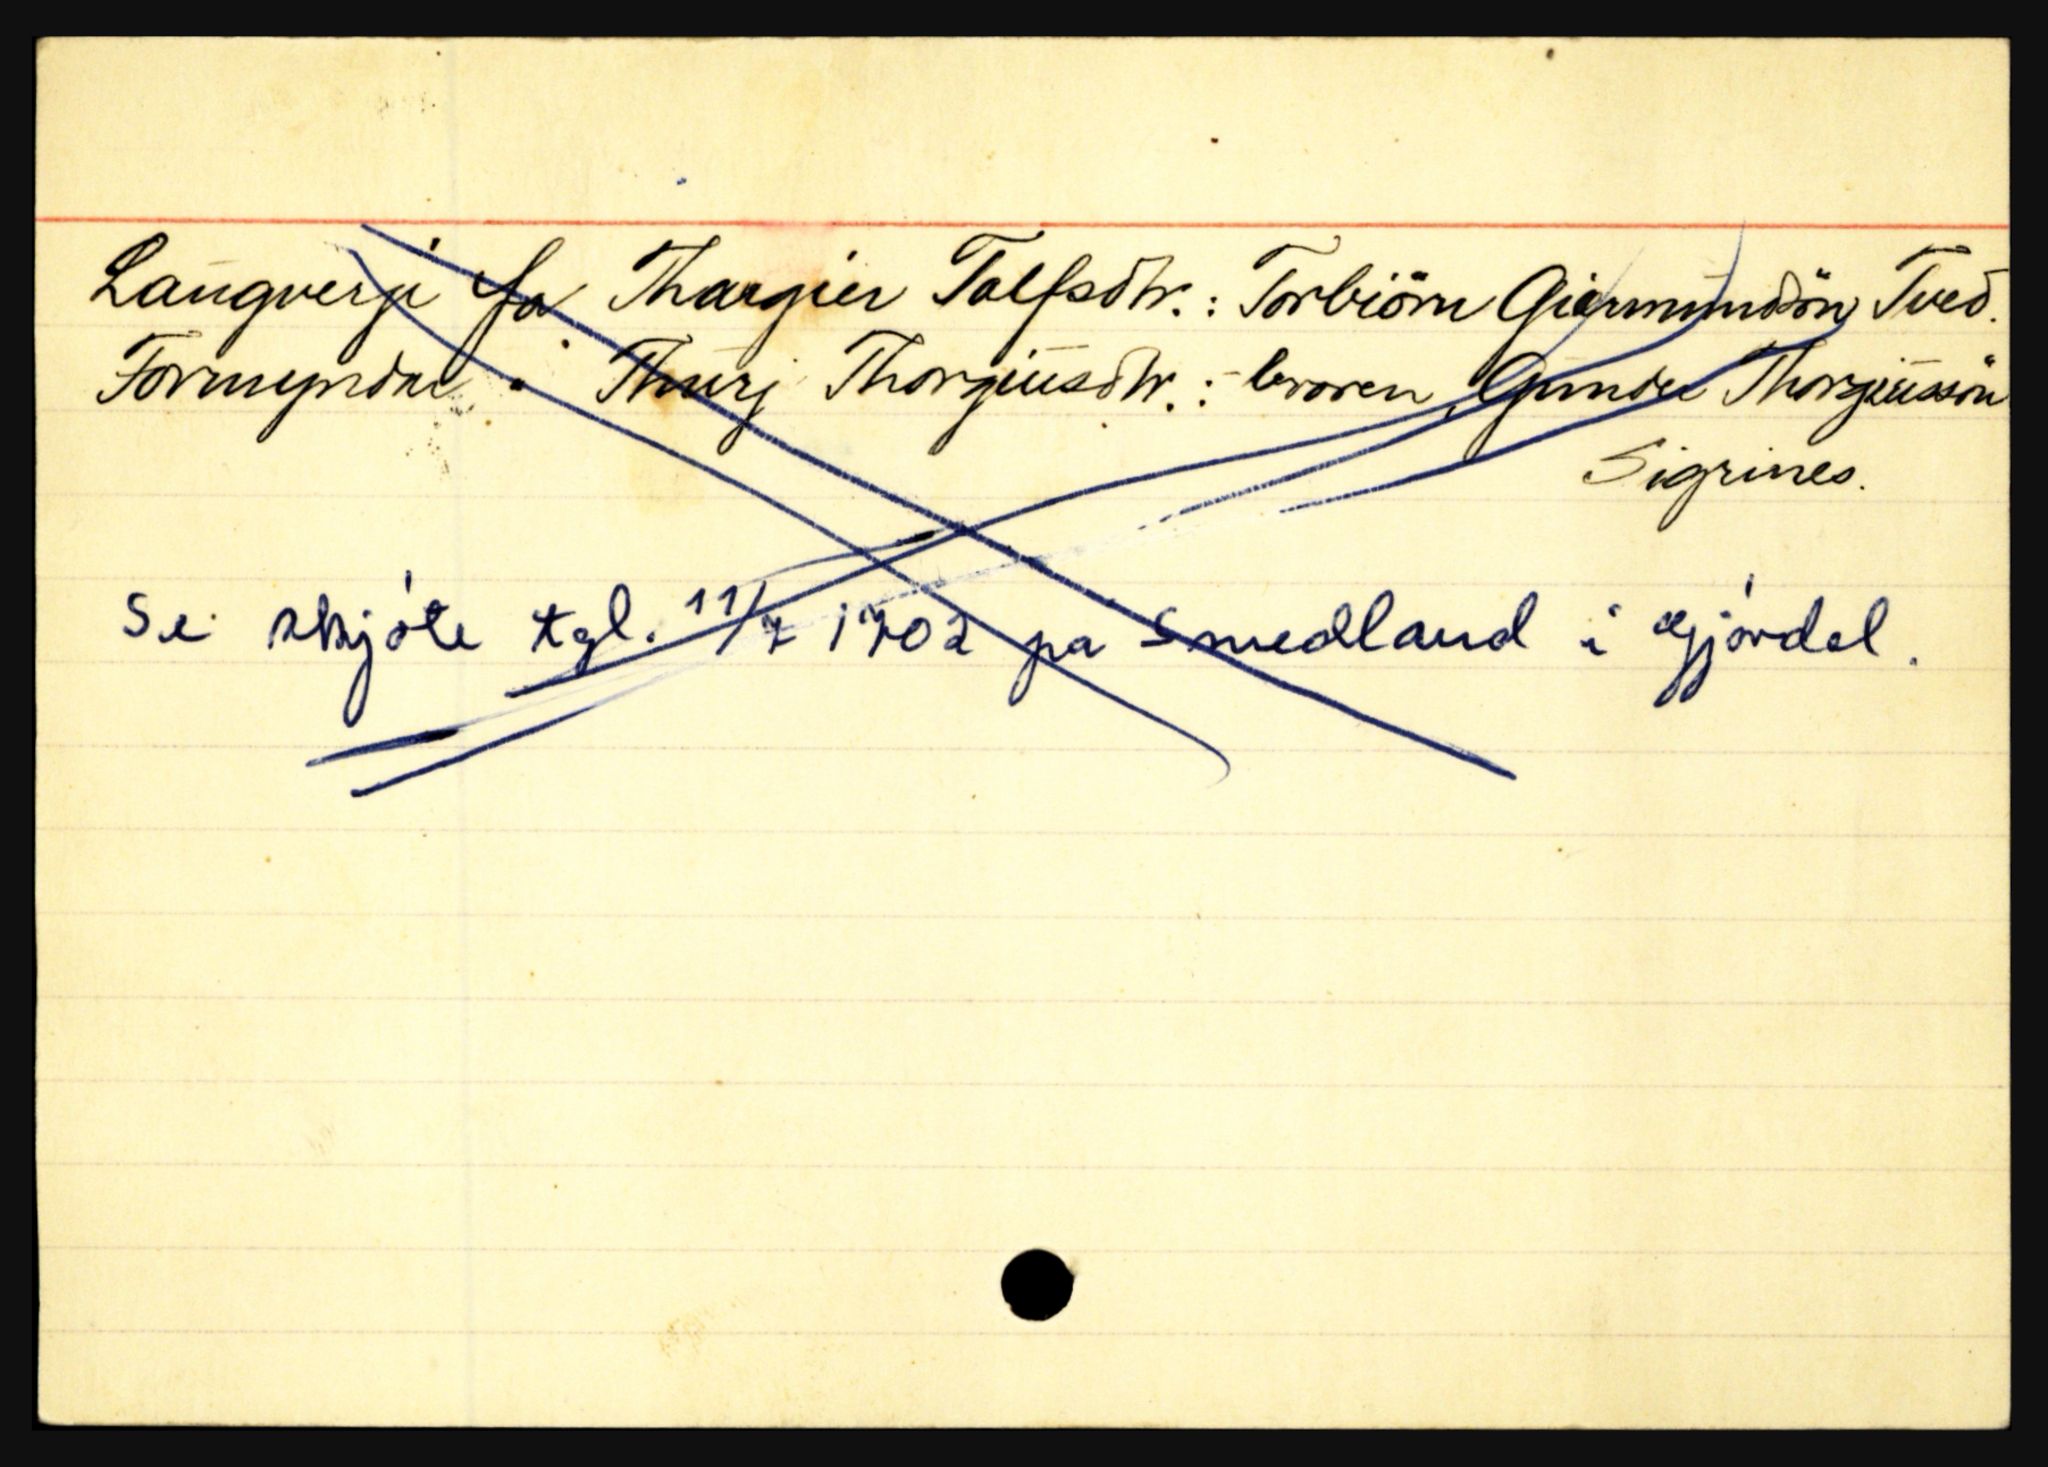 Laugverje for Thargier Tolfsdtr.: Torbiörn Giermundsön Tved.
Formynder " Thurj Thorgiusdtr.: broren Gunder Thorgiussön
Sigrines.
Se skjøte tgl. 11/7 1702 på Smedland i Gjøvdal.